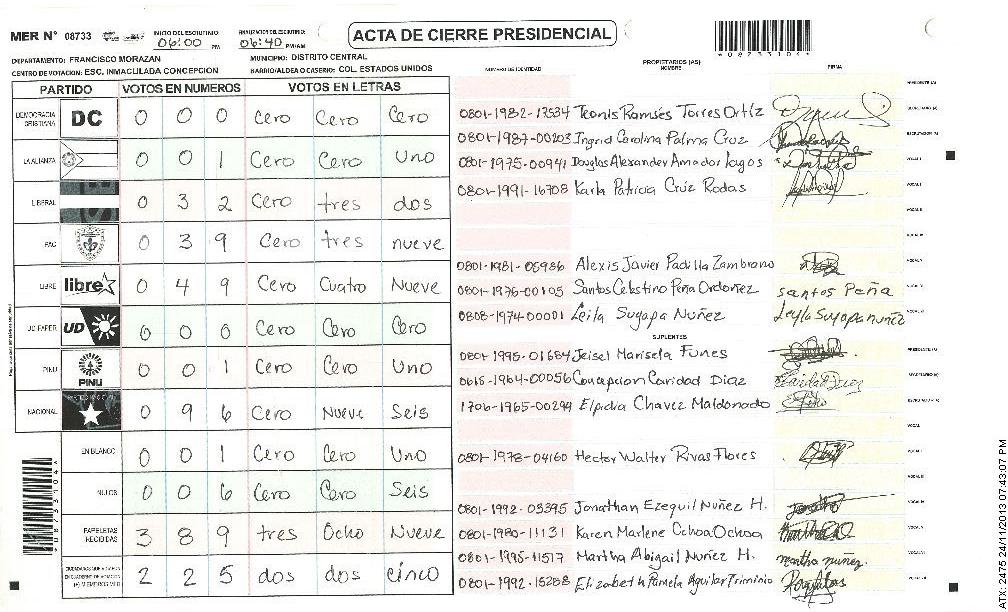 MER N° 08733
INICIO DEL ESCRUTINIO:
06:00 PM
FINALIZACION DEL ESCRUTINIO:
06:40 PM/AM
ACTA DE CIERRE PRESIDENCIAL
*08733104*
DEPARTAMENTO: FRANCISCO MORAZAN
MUNICIPIO: DISTRITO CENTRAL
CENTRO DE VOTACION: ESC. INMACULADA CONCEPCION
BARRIO/ALDEA O CASERIO: COL. ESTADOS UNIDOS
PARTIDO VOTOS EN NUMEROS VOTOS EN LETRAS
DEMOCRACIA CRISTIANA DC 0 0 0 Cero Cero Cero
LA ALIANZA 0 0 1 Cero Cero Uno
LIBERAL 0 3 2 Cero tres dos
PAC 0 3 9 Cero tres nueve
LIBRE libre 0 4 9 Cero Cuatro Nueve
UD-FAPER UD 0 0 0 Cero Cero Cero
PINU PINU 0 0 1 Cero Cero Uno
NACIONAL 0 9 6 Cero Nueve Seis
EN BLANCO 0 0 1 Cero Cero Uno
NULOS 0 0 6 Cero Cero Seis
PAPELETAS RECIBIDAS 3 8 9 tres Ocho Nueve
CIUDADANOS QUE VOTARON EN CUADERNO DE VOTACION (+) MIEMBROS MER 2 2 5 dos dos cinco
NUMERO DE IDENTIDAD
PROPIETARIOS (AS)
NOMBRE
FIRMA
PRESIDENTE (A)
0801-1982-13534 Teonis Ramsés Torres Ortíz SECRETARIO (A)
0801-1987-00203 Ingrid Carolina Palma Cruz ESCRUTADOR (A)
0801-1975-00941 Douglas Alexander Amador Lagos VOCAL I
0801-1991-16708 Karla Patricia Cruz Rodas
0801-1981-05986 Alexis Javier Padilla Zambrano
0801-1976-00105 Santos Celestino Peña Ordoñez santos Peña
0808-1974-00001 Leila Suyapa Nuñez Leyla Suyapa nunez
SUPLENTES
0801-1995-01684 Jeisel Marisela Funes PRESIDENTE (A)
0615-1964-00056 Concepcion Caridad Diaz SECRETARIO (A)
1706-1965-00294 Elpidia Chavez Maldonado ESCRUTADOR (A)
0801-1978-04160 Hector Walter Rivas Flores
0801-1992-03395 Jonathan Ezequil Nuñez H.
0801-1980-11131 Karen Marlene Ochoa Ochoa
0801-1995-11517 Martha Abigail Nuñez H. martha nuñez
0801-1992-15288 Elizabeth Pamela Aguilar Triminio
ATX-2475 24/11/2013 07:43:07 PM